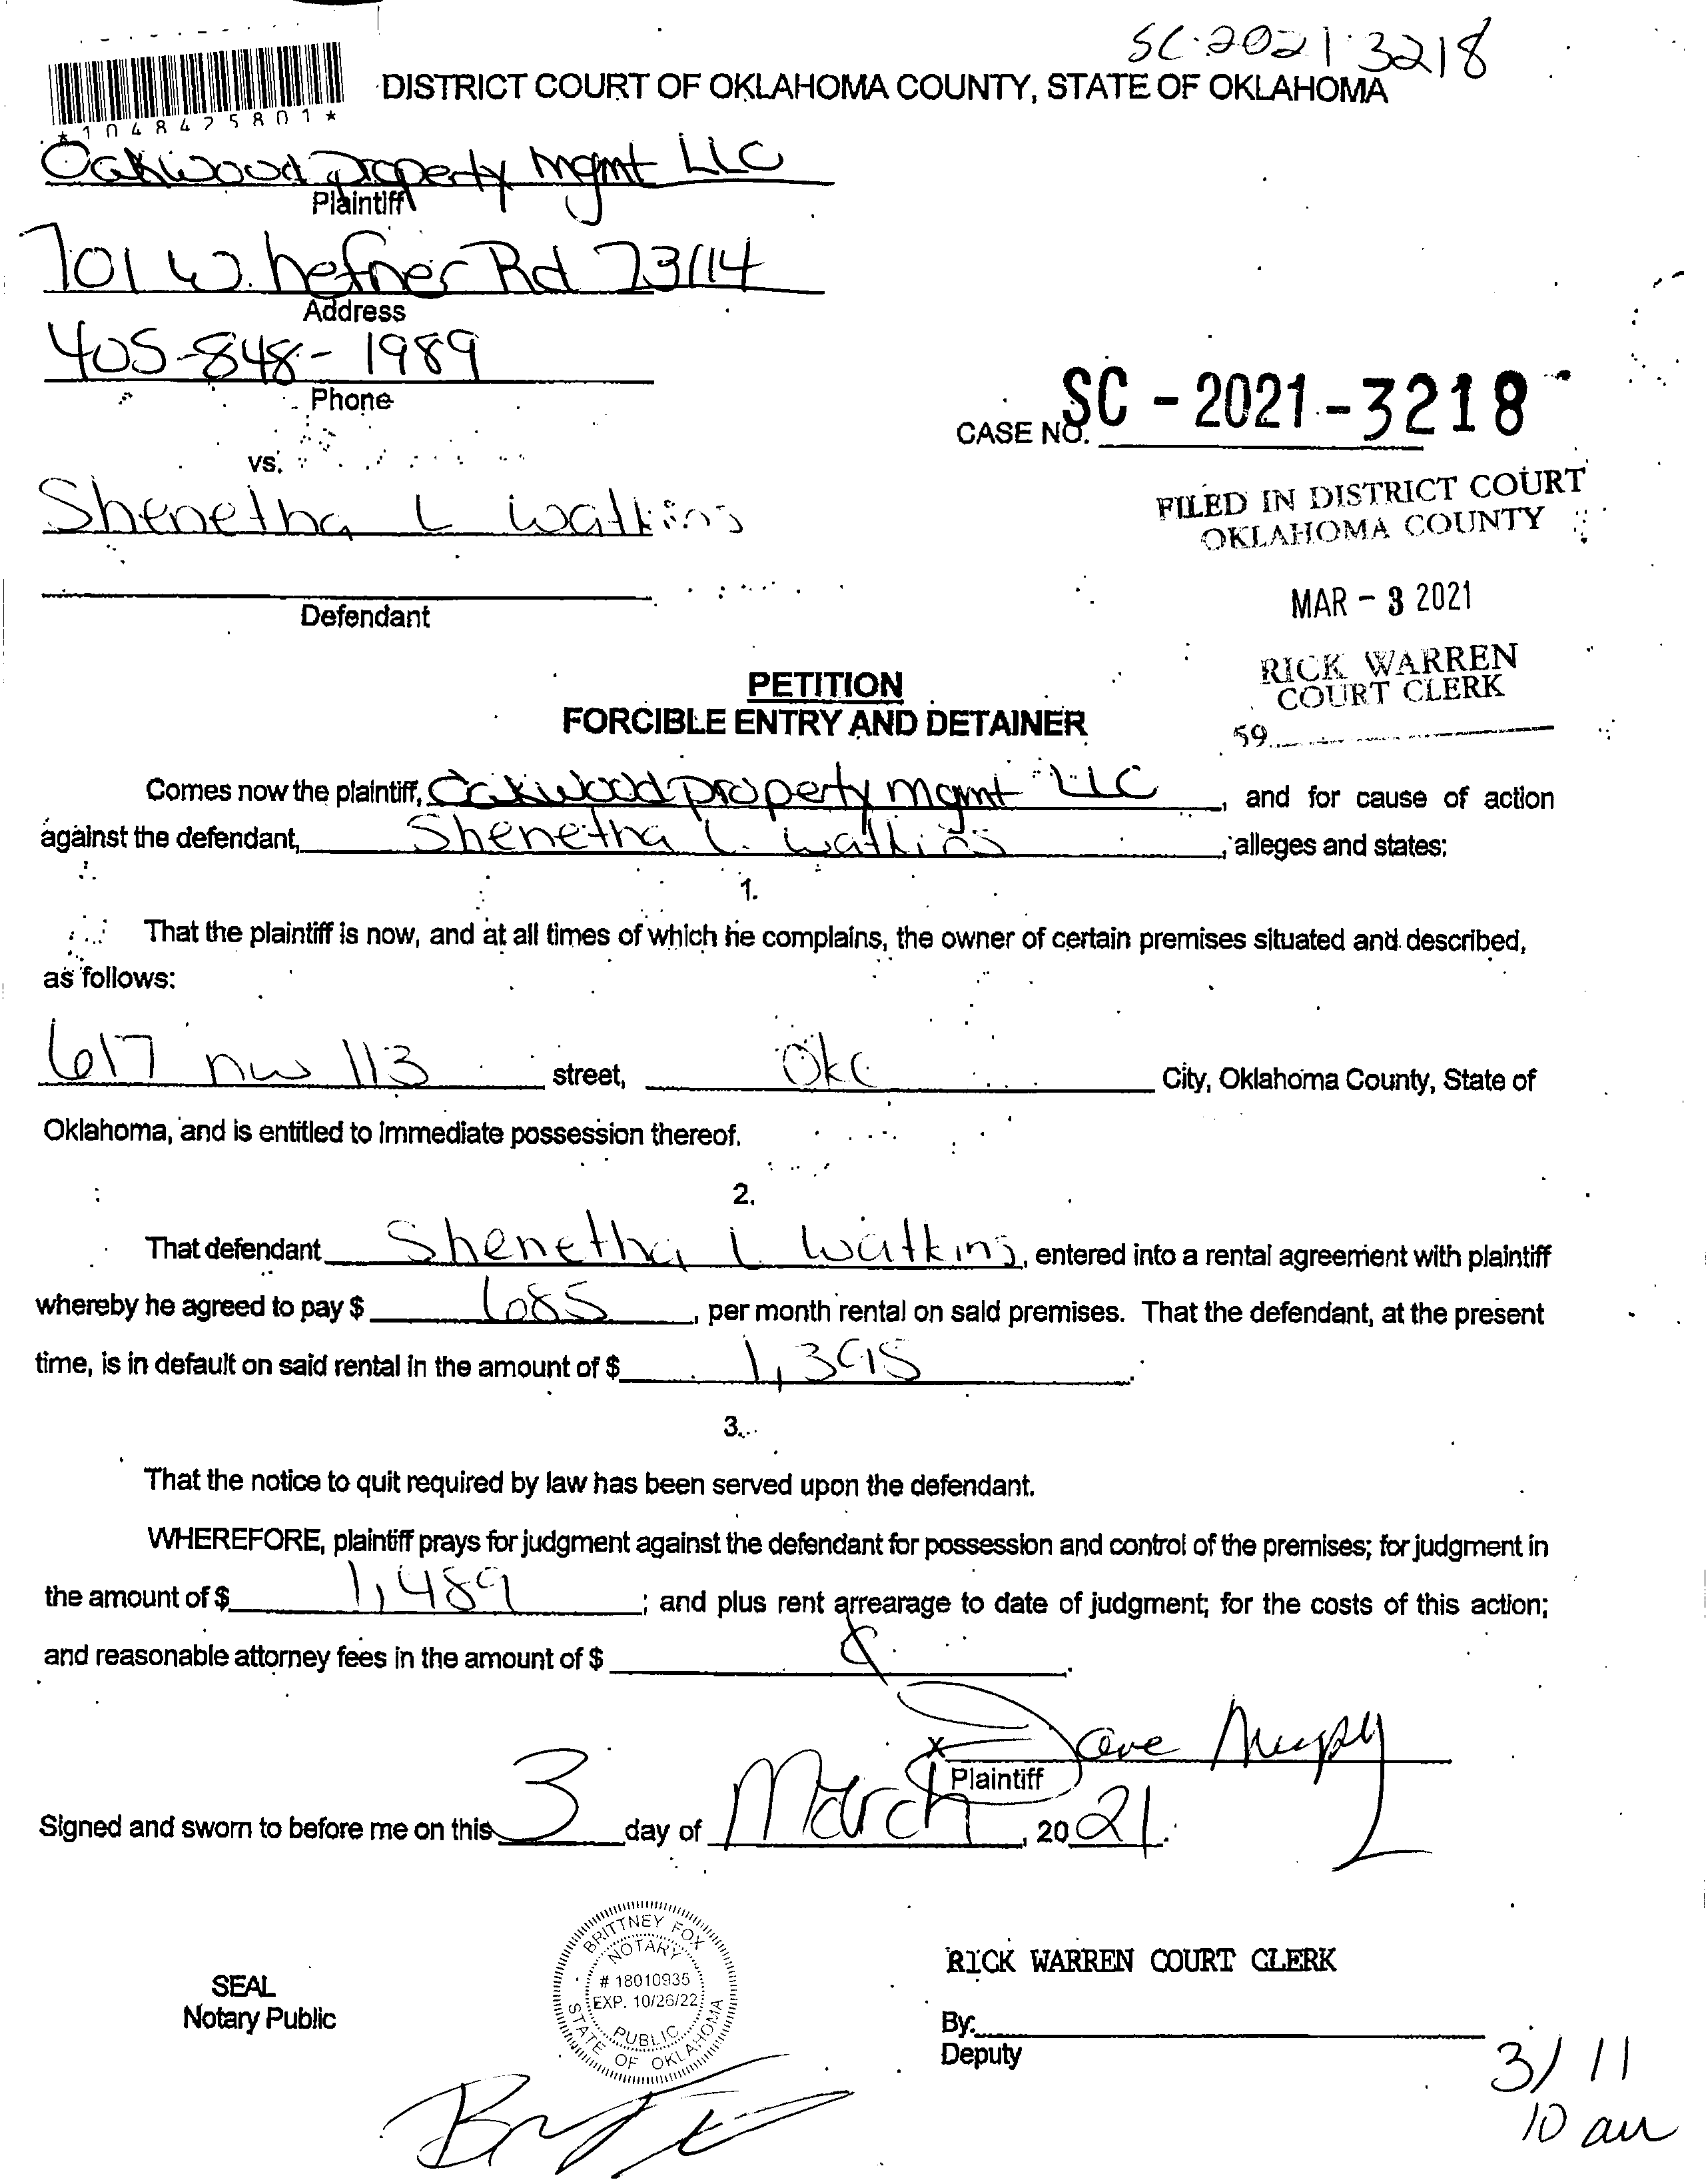 SC-2021-3218
DISTRICT COURT OF OKLAHOMA COUNTY, STATE OF OKLAHOMA
*1048425801*
Oakwood property mgmt LLC
Plaintiff
701 W. hefner Rd 73114
Address
405-848-1989
Phone
CASE NO. SC - 2021 - 3218
vs.
Shenetha L Watkins
FILED IN DISTRICT COURT
OKLAHOMA COUNTY
Defendant
MAR - 3 2021
RICK WARREN
COURT CLERK
59
PETITION
FORCIBLE ENTRY AND DETAINER
Comes now the plaintiff, Oakwood property mgmt LLC, and for cause of action
against the defendant, Shenetha L. Watkins, alleges and states:
1.
That the plaintiff is now, and at all times of which he complains, the owner of certain premises situated and described,
as follows:
617 nw 113 street, Okc City, Oklahoma County, State of
Oklahoma, and is entitled to immediate possession thereof.
2.
That defendant Shenetha L Watkins, entered into a rental agreement with plaintiff
whereby he agreed to pay $ 685, per month rental on said premises. That the defendant, at the present
time, is in default on said rental in the amount of $ 1,395.
3.
That the notice to quit required by law has been served upon the defendant.
WHEREFORE, plaintiff prays for judgment against the defendant for possession and control of the premises; for judgment in
the amount of $ 1,489; and plus rent arrearage to date of judgment; for the costs of this action;
and reasonable attorney fees in the amount of $.
x Dave Murphy
Plaintiff
Signed and sworn to before me on this 3 day of March, 2021.
BRITTNEY FOX
NOTARY
# 18010935
EXP. 10/26/22
PUBLIC
STATE OF OKLAHOMA
SEAL
Notary Public
RICK WARREN COURT CLERK
By:
Deputy
3/11
10 am